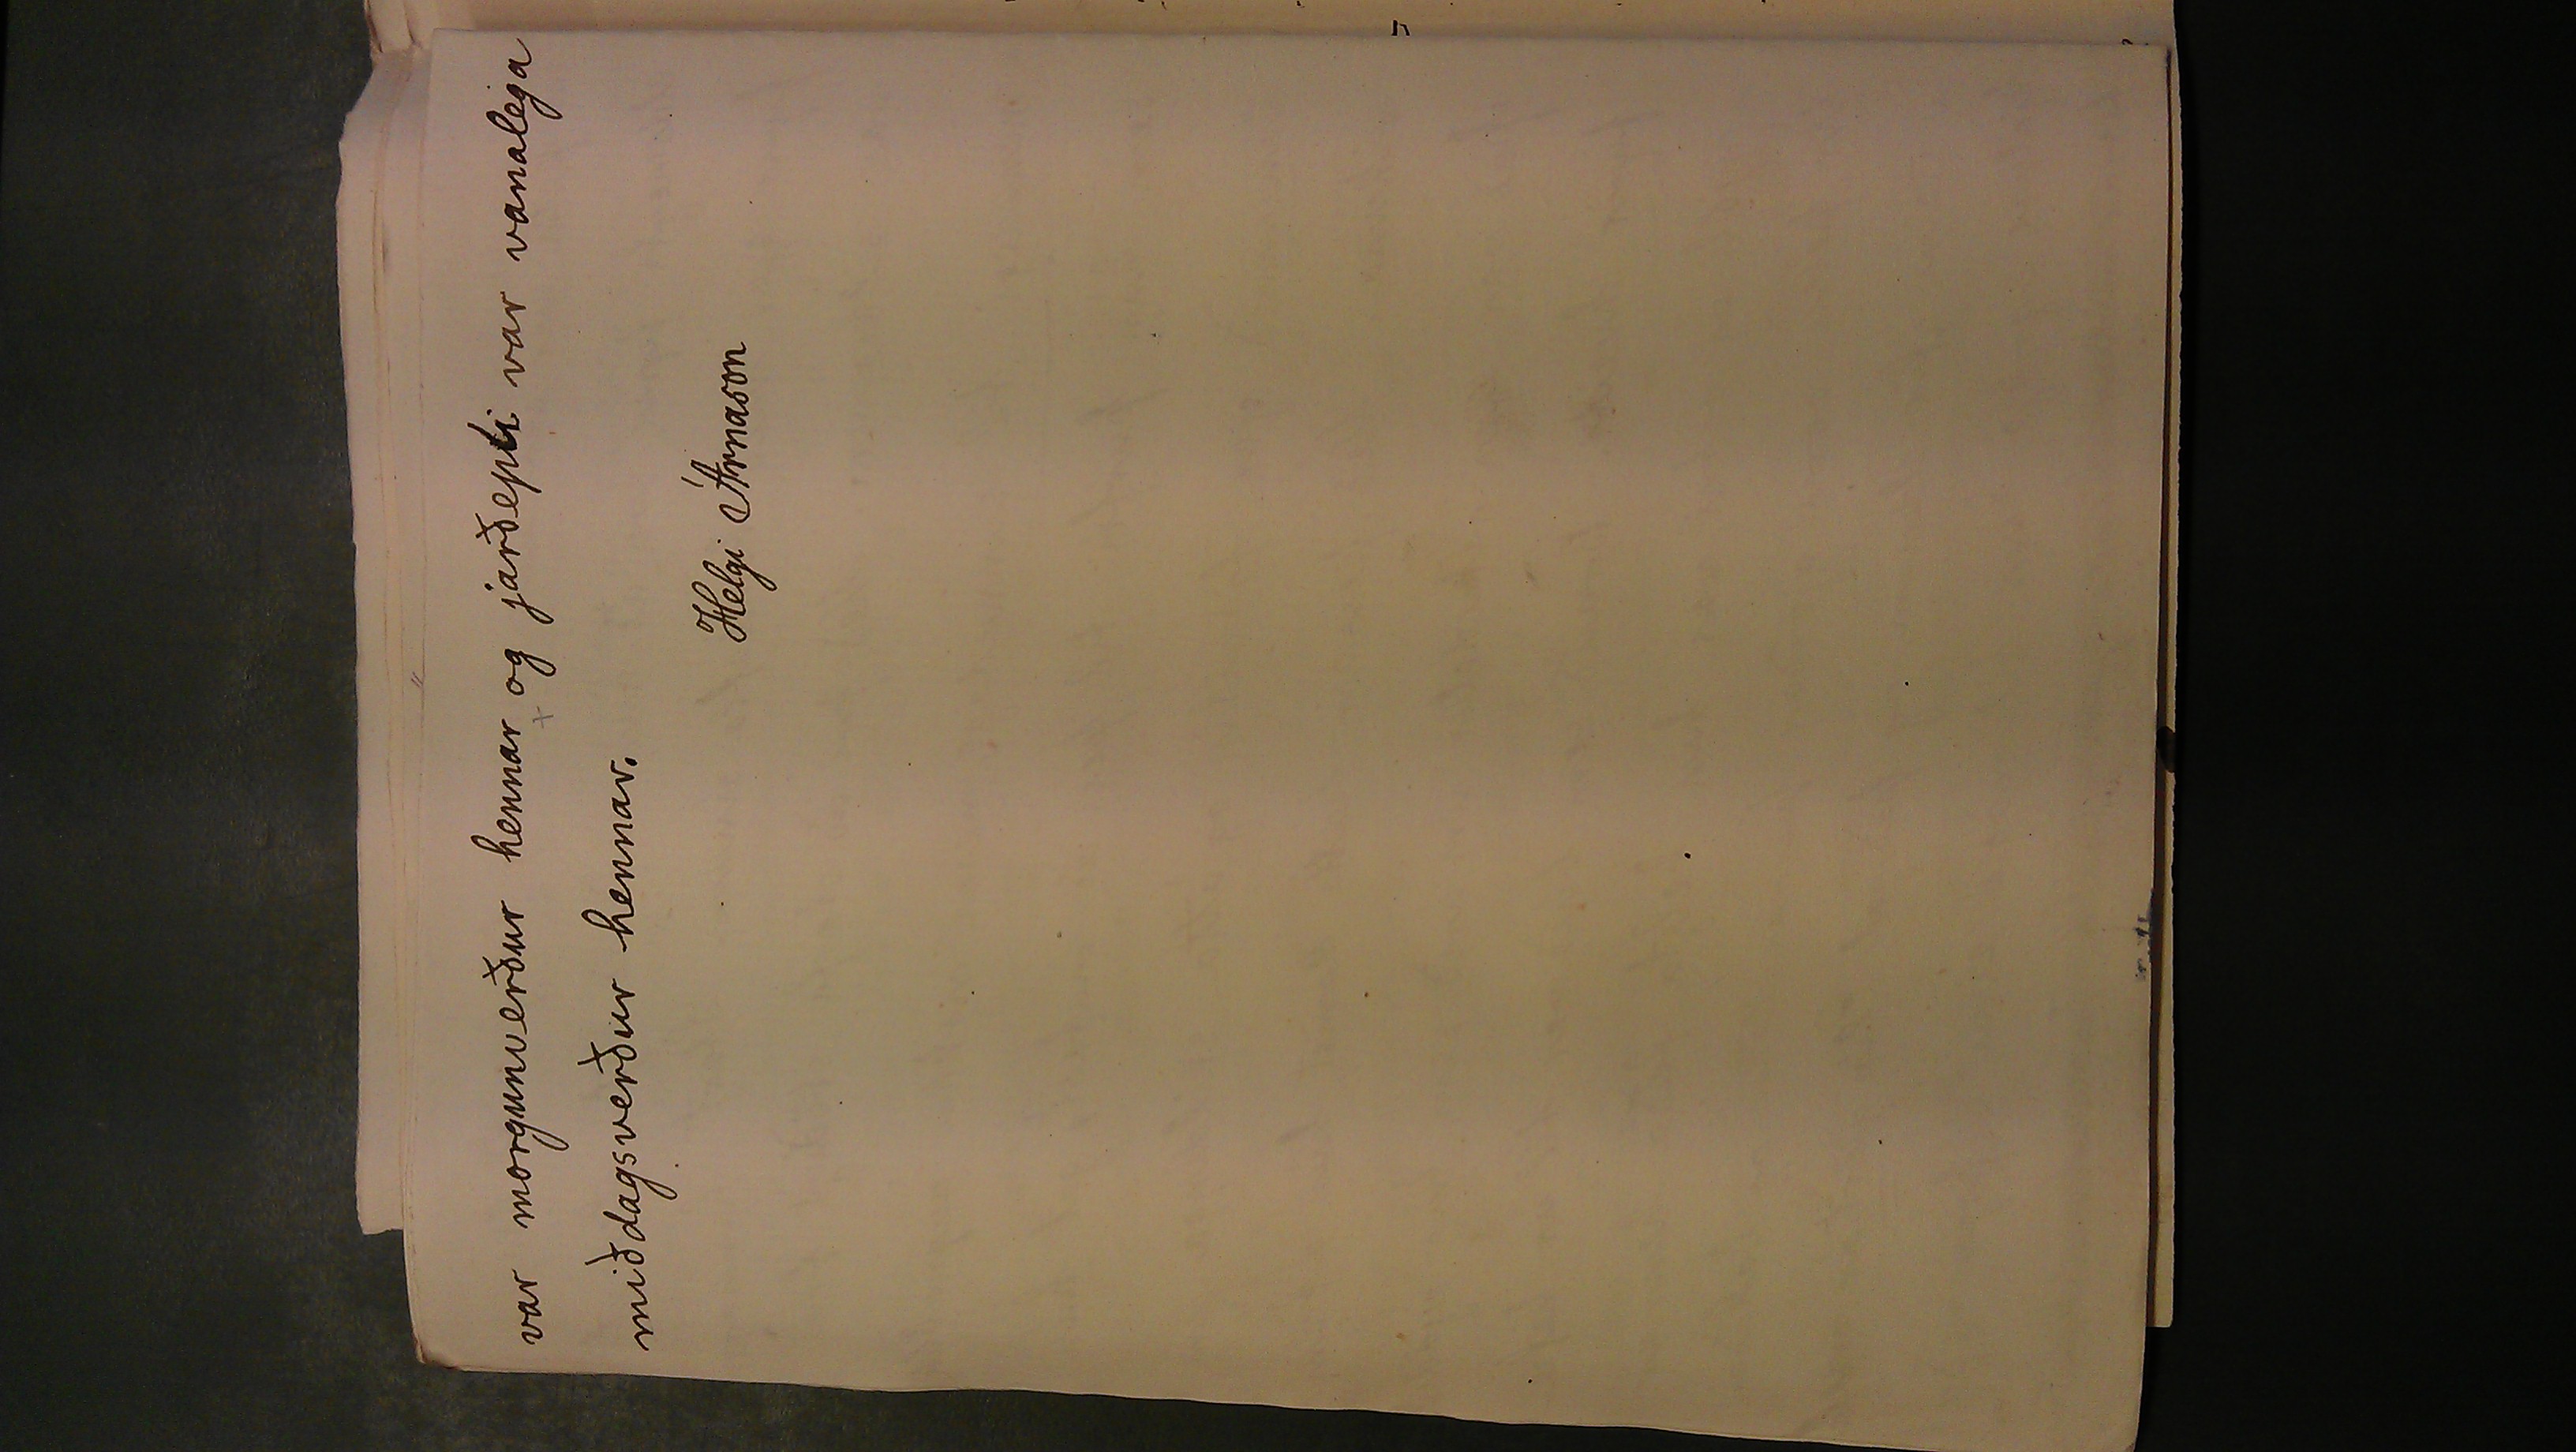 var morgunverður hennar og jarðepli var vanalega
miðdagsverður hennar.
Helgi Árnason